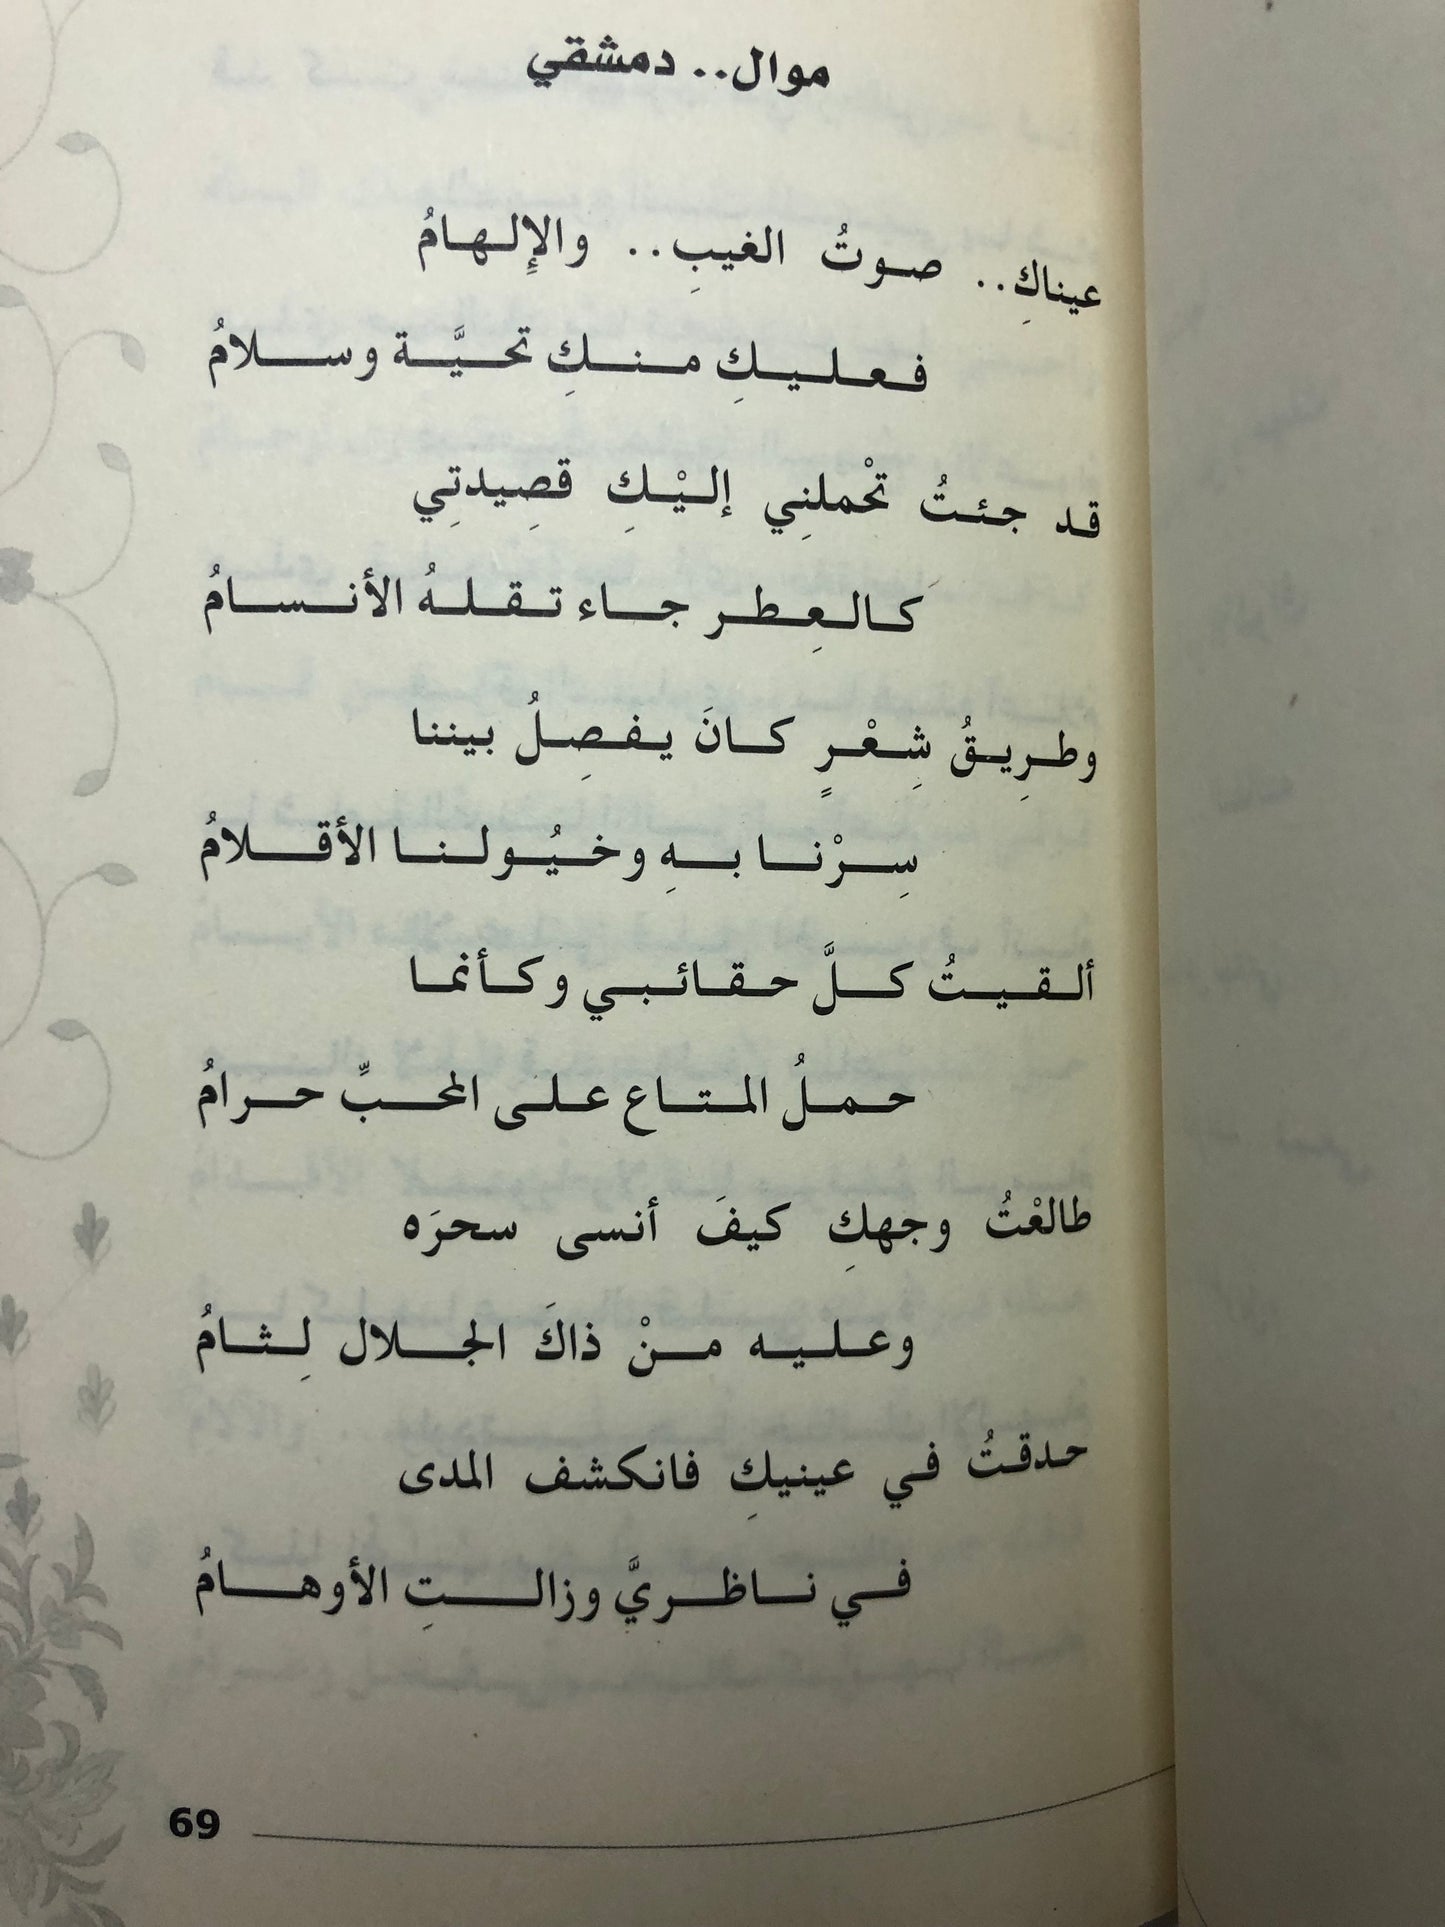 موال.. دمشقي
عيناكِ.. صوتُ الغيبِ.. والإِلهامُ
فعليكِ منكِ تحيَّة وسلامُ
قد جئتُ تحْملنِي إليْكِ قصِيدتِي
كَالعِطرِ جاء تقلهُ الأنسامُ
وطرِيقُ شِعْرٍ كانَ يفصِلُ بيننا
سِرْنا بهِ وخيُولنا الأقلامُ
ألقيتُ كلَّ حقائبي وكأنما
حملُ المتاع على المحبِّ حرامُ
طالعْتُ وجهكِ كيفَ أنسى سحرَه
وعليه منْ ذاكَ الجلال لِثامُ
حدقتُ في عينيكِ فانكشف المدى
في ناظريَّ وزالتِ الأوهامُ
69